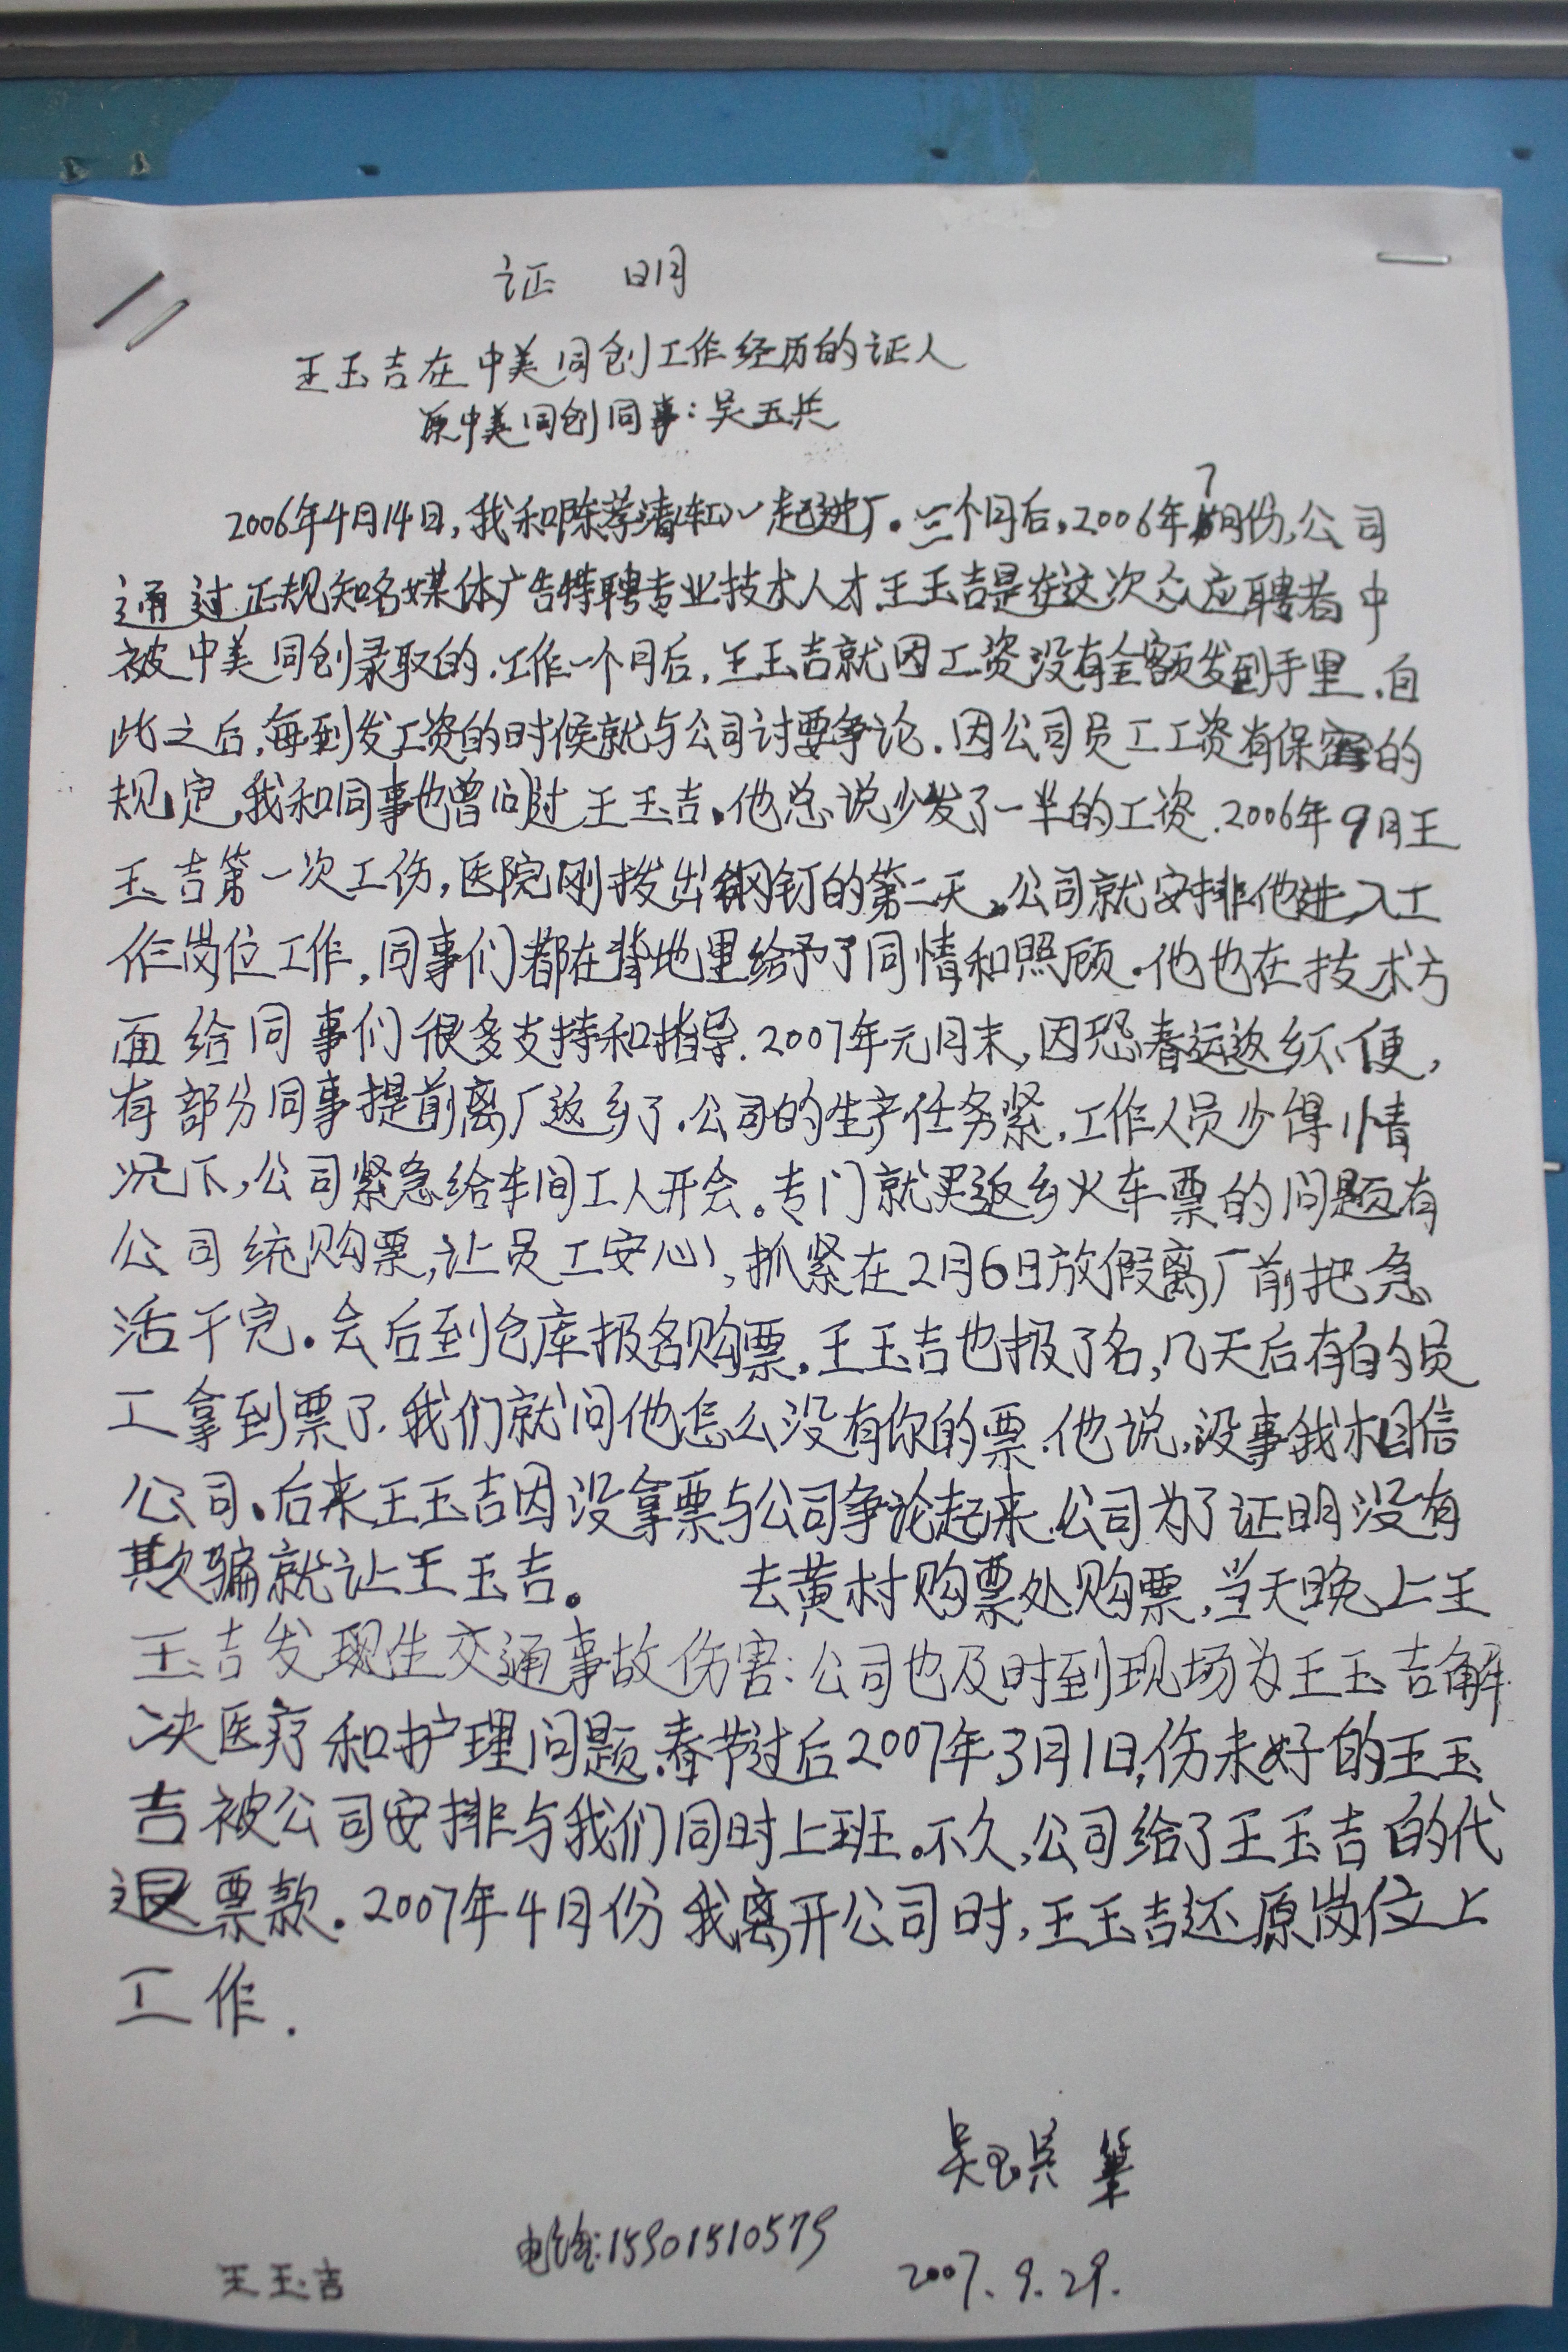 证 明
王玉吉在中美同创工作经历的证人
原中美同创同事:吴玉兵
2006年4月14日,我和陈荐清(车工)一起进厂。三个月后,2006年7月份,公司
通过正规知名媒体广告特聘专业技术人才.王玉吉是在这次众应聘者中
被中美同创录取的.工作一个月后,王玉吉就因工资没有全额发到手里.自
此之后,每到发工资的时候就与公司讨要争论.因公司员工工资有保密的
规定,我和同事也曾问过王玉吉。他总说少发了一半的工资.2006年9月王
玉吉第一次工伤,医院刚拨出钢钉的第二天,公司就安排他进入工
作岗位工作,同事们都在背地里给予了同情和照顾.他也在技术方
面给同事们很多支持和指导.2007年元月末,因恐春运返乡不便,
有部分同事提前离厂返乡了.公司的生产任务紧,工作人员少得情
况下,公司紧急给车间工人开会。专门就买返乡火车票的问题有
公司统购票,让员工安心,抓紧在2月6日放假离厂前把急
活干完.会后到仓库报名购票.王玉吉也报了名,几天后有的员
工拿到票了.我们就问他怎么没有你的票.他说,没事我相信
公司.后来王玉吉因没拿票与公司争论起来.公司为了证明没有
欺骗就让王玉吉。 去黄村购票处购票,当天晚上王
玉吉发现生交通事故伤害:公司也及时到现场为王玉吉解
决医疗和护理问题.春节过后2007年3月1日,伤未好的王玉
吉被公司安排与我们同时上班.不久,公司给了王玉吉的代
退票款.2007年4月份我离开公司时,王玉吉还原岗位上
工作.
吴玉兵 笔
电话:15901510579
2007.9.29.
王玉吉